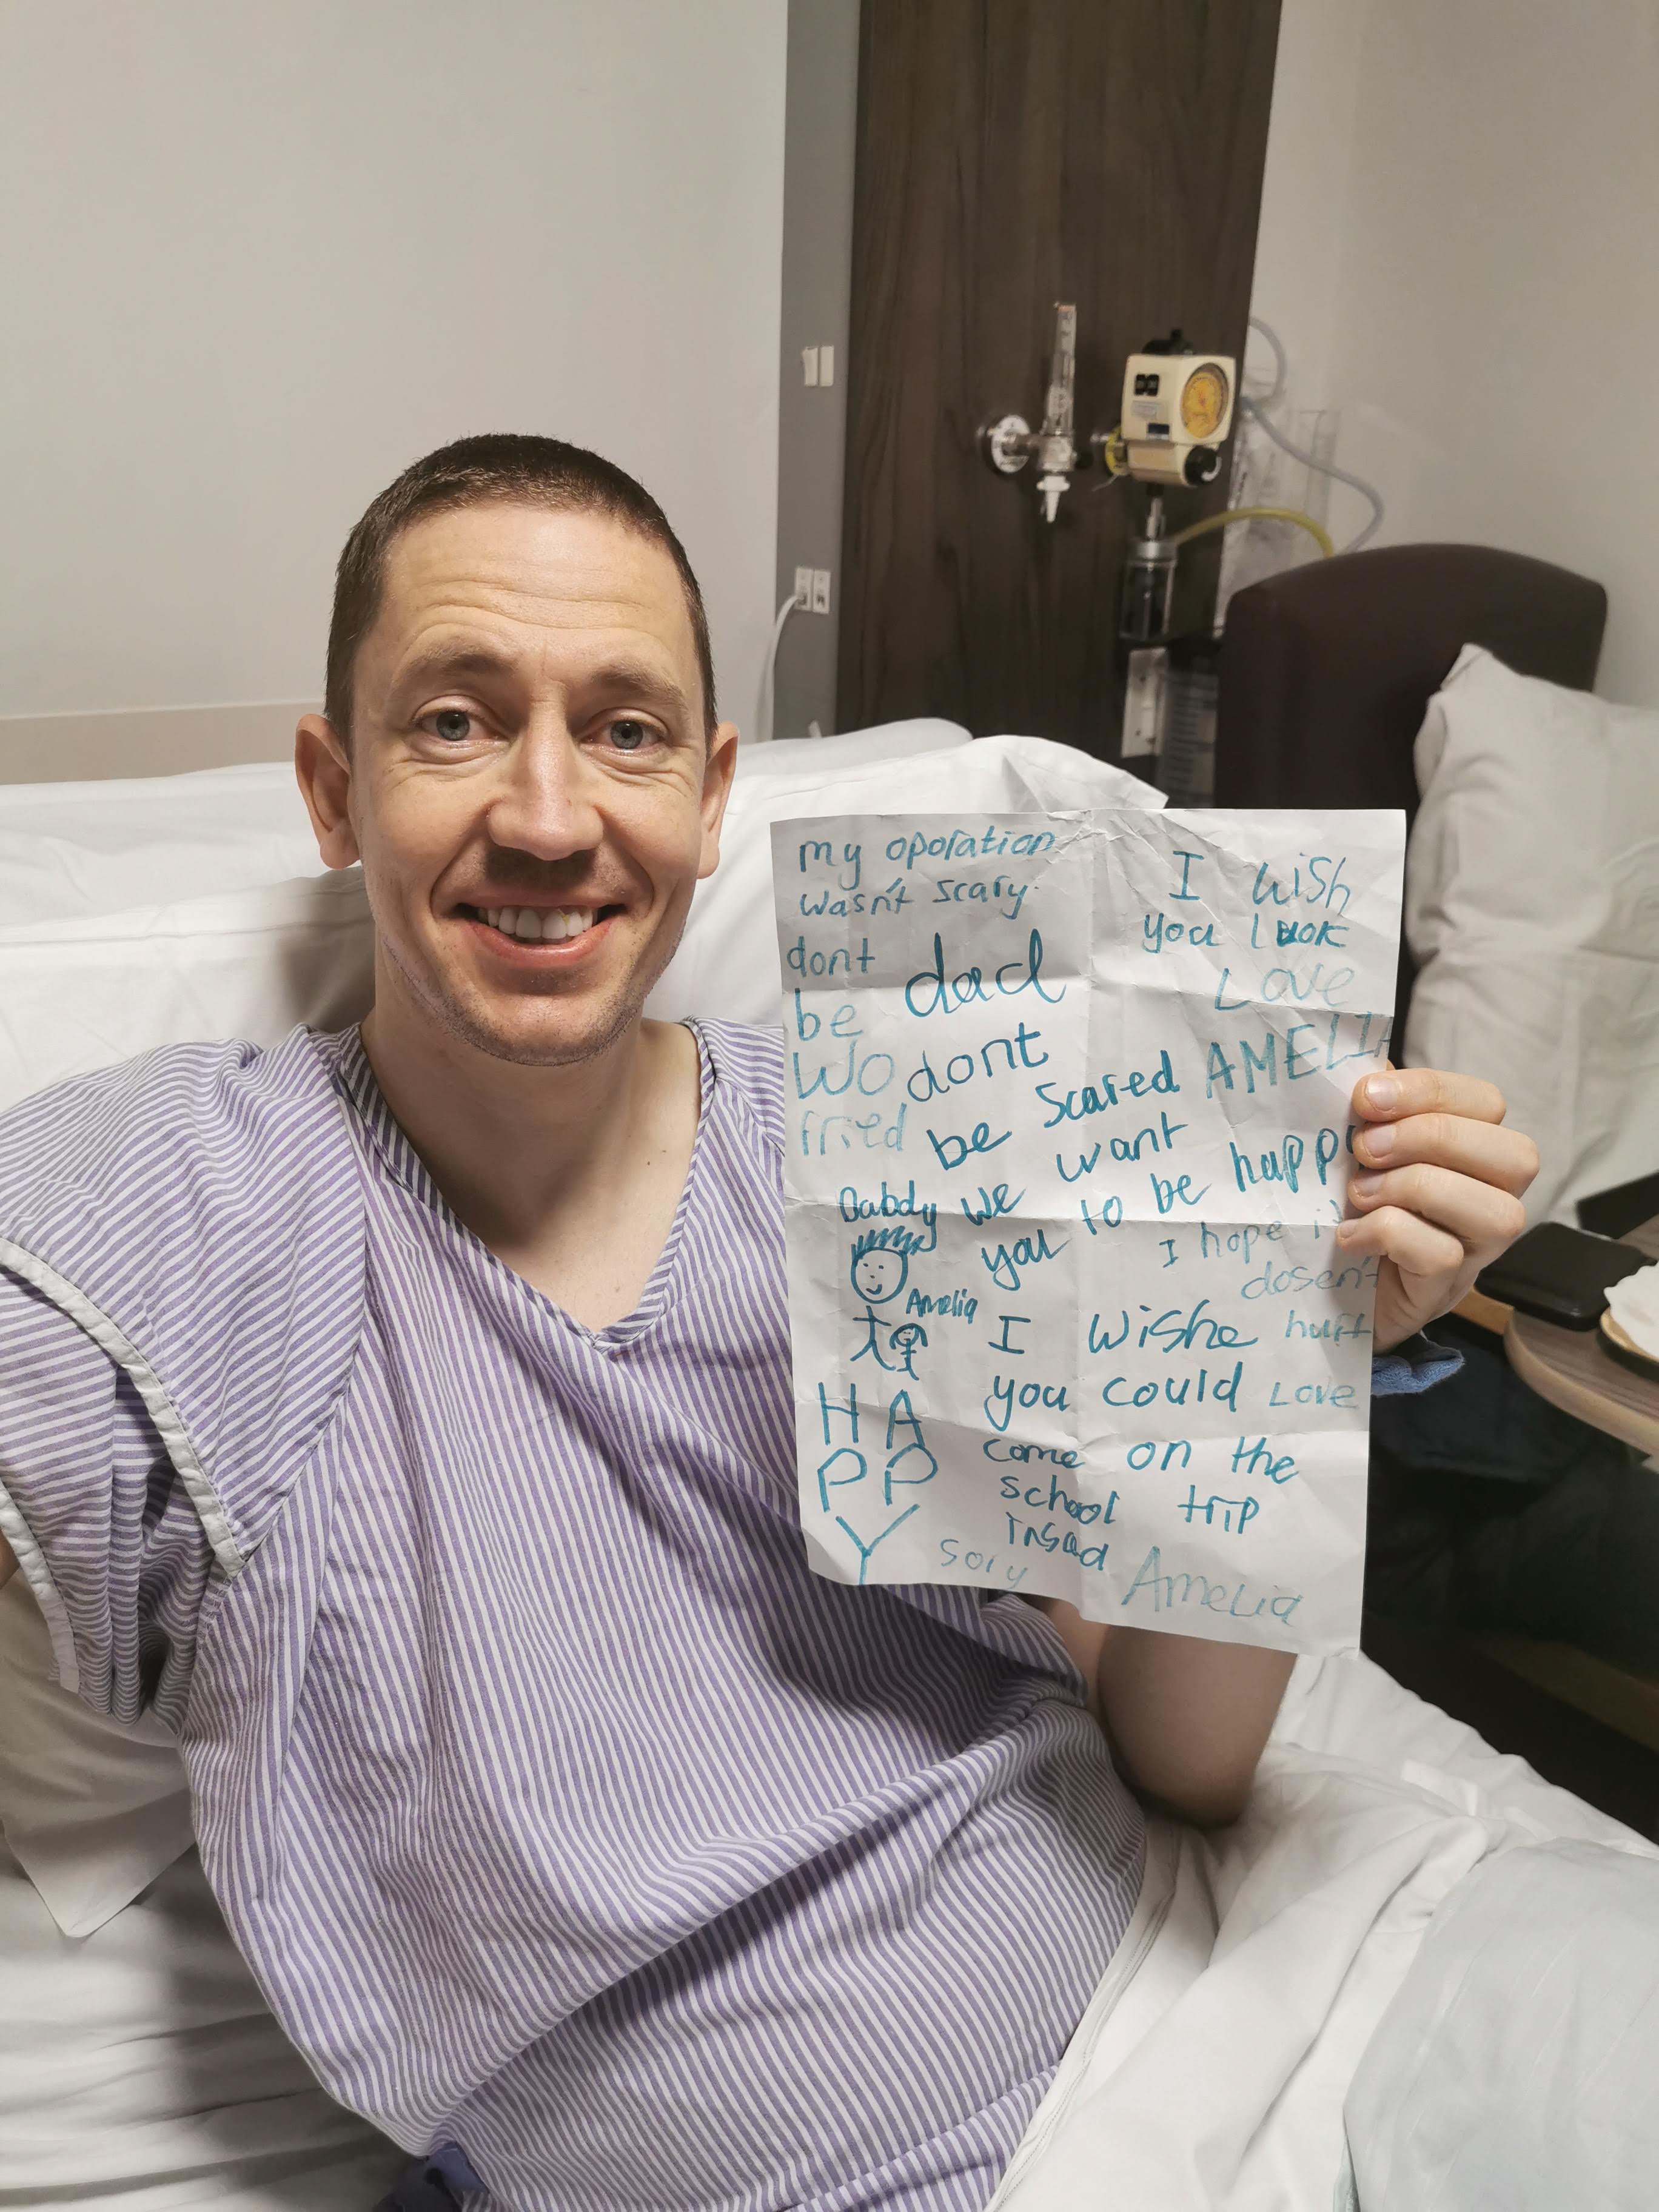 my oporation
wasn't scary.
dont
be
wo
rried
I wish
you luok
Love
AMELIA
dad
dont
be scared
we want
you to be happy
I hope it
dosen't
hurt
Love
Dabdy
Amelia
HA
PP
Y
I wishe
you could
come on the
school trip
insad
sory
Amelia